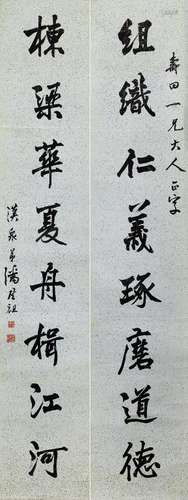 壽田一兄大人正字
組織仁義琢磨道德
棟梁華夏舟楫江河
漢泉弟潘